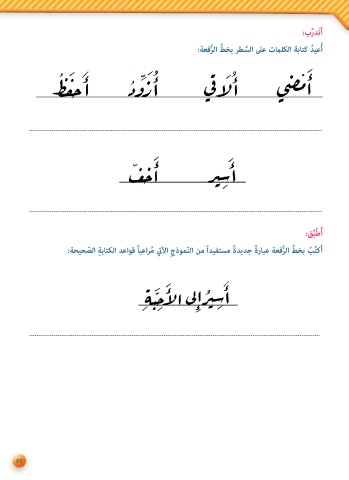 أتدرّب:
أُعيدُ كتابةَ الكلماتِ على السَّطرِ بخطِّ الرُّقعةِ:
أَمْضي أُلَاقي أُزَوِّدُ أَحفَظُ
أَسِير أَخْفّ
أُطَبِّق:
أكتُبُ بخطِّ الرُّقعةِ عبارةً جديدةً مستفيداً من النّموذجِ الآتي مُراعياً قواعدَ الكتابةِ الصّحيحة:
أَسِيرُ إلى الأَحِبَّةِ
٥٥